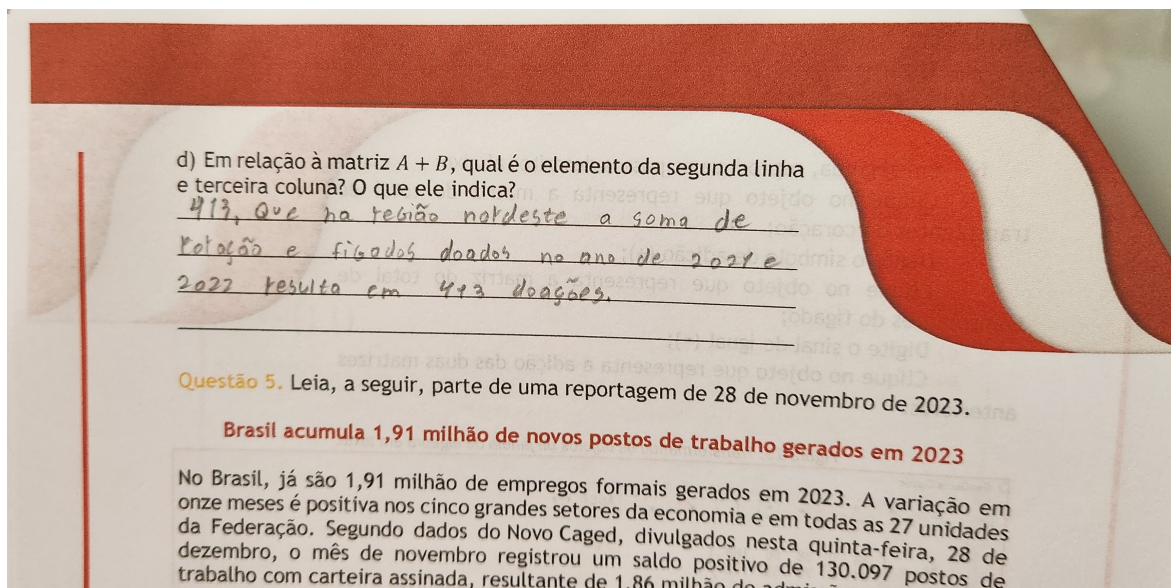 d) Em relação à matriz A + B, qual é o elemento da segunda linha
e terceira coluna? O que ele indica?
413, Que na região nordeste a soma de
e figados doados no ano de 2021 e
2022 resulta em 413 doações.
Questão 5. Leia, a seguir, parte de uma reportagem de 28 de novembro de 2023.
Brasil acumula 1,91 milhão de novos postos de trabalho gerados em 2023
No Brasil, já são 1,91 milhão de empregos formais gerados em 2023. A variação em
onze meses é positiva nos cinco grandes setores da economia e em todas as 27 unidades
da Federação. Segundo dados do Novo Caged, divulgados nesta quinta-feira, 28 de
dezembro, o mês de novembro registrou um saldo positivo de 130.097 postos de
trabalho com carteira assinada, resultante de 1,86 milhão de